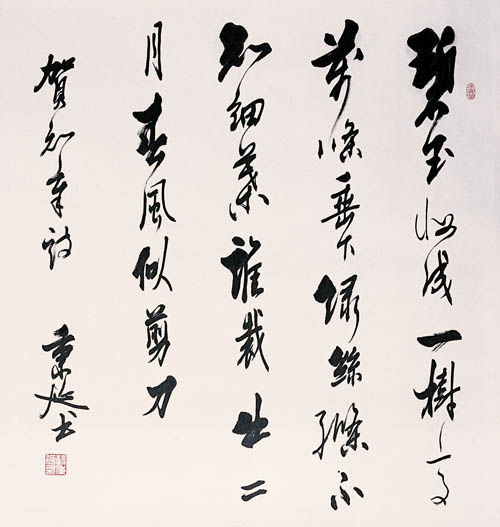 碧玉妝成一樹高
萬條垂下綠絲縧不
知細葉誰裁出二
月春風似剪刀
賀知章詩 書